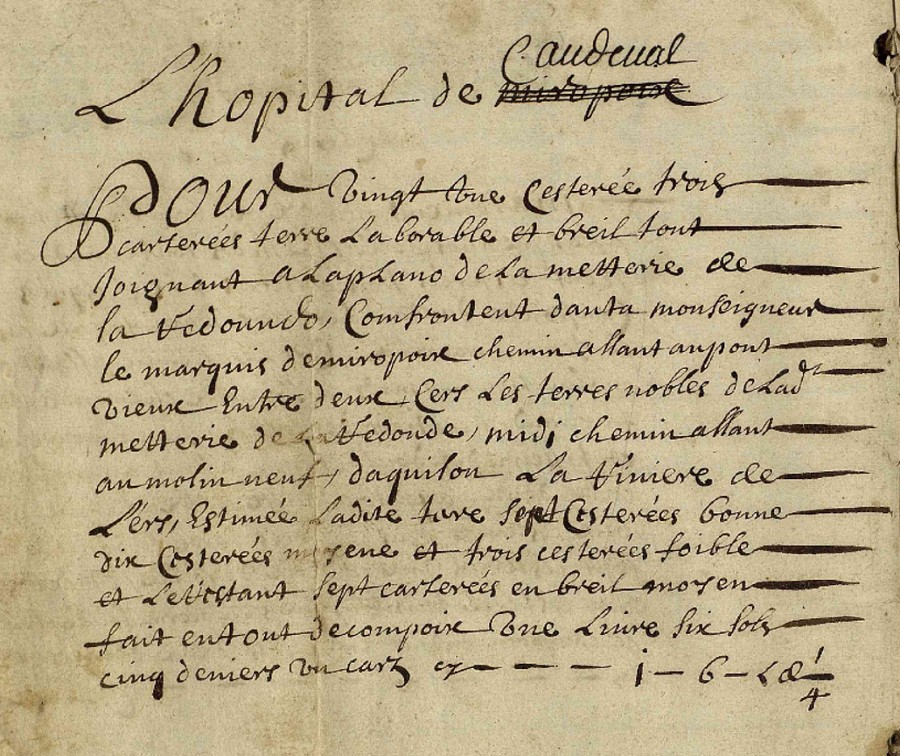 Caudeval
L'hopital de miropoix
Pour vingt une cesterée trois
carterées terre Laborable et breil tout
Joignant a Laplano de La metterie de
la redoundo, Comfrontent dauta monseigneur
le marquis demiropoix chemin allant au pont
vieux Entre deux, Cers Les terres nobles de Lad.t
metterie de La redonde, midi chemin allant
au molin neuf, daquilon La riviere de
Lérs, Estimée Ladite terre sept Cesterées bonne
dix Cesterées moyene et trois cesterées foible
et Le restant sept carterées en breil moyen
fait en tout de compoix vne Liure six sols
cinq deniers vn carz cy - - - - 1 - 6 - 1/4